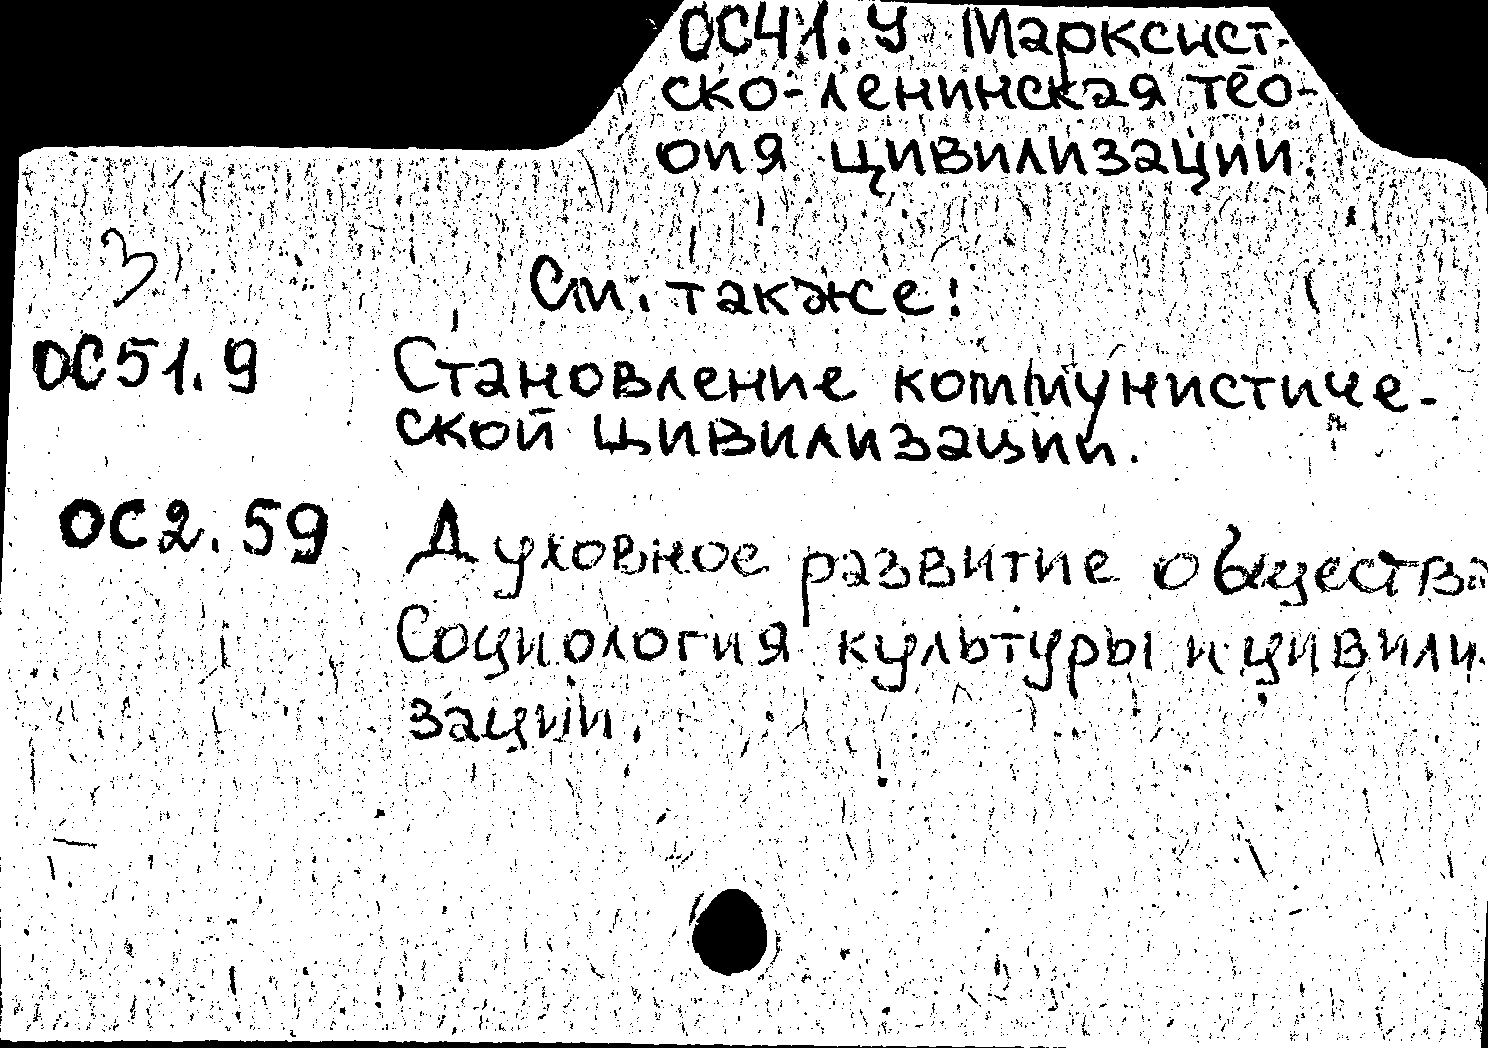 ОС41.9 Марксист-
ско-ленинская тео-
рия цивилизации.
3
См. также:
ОС51.9 Становление коммунистиче-
ской цивилизации.
ОС2.59 Духовное развитие общества
Социология культуры и цивили-
зации.